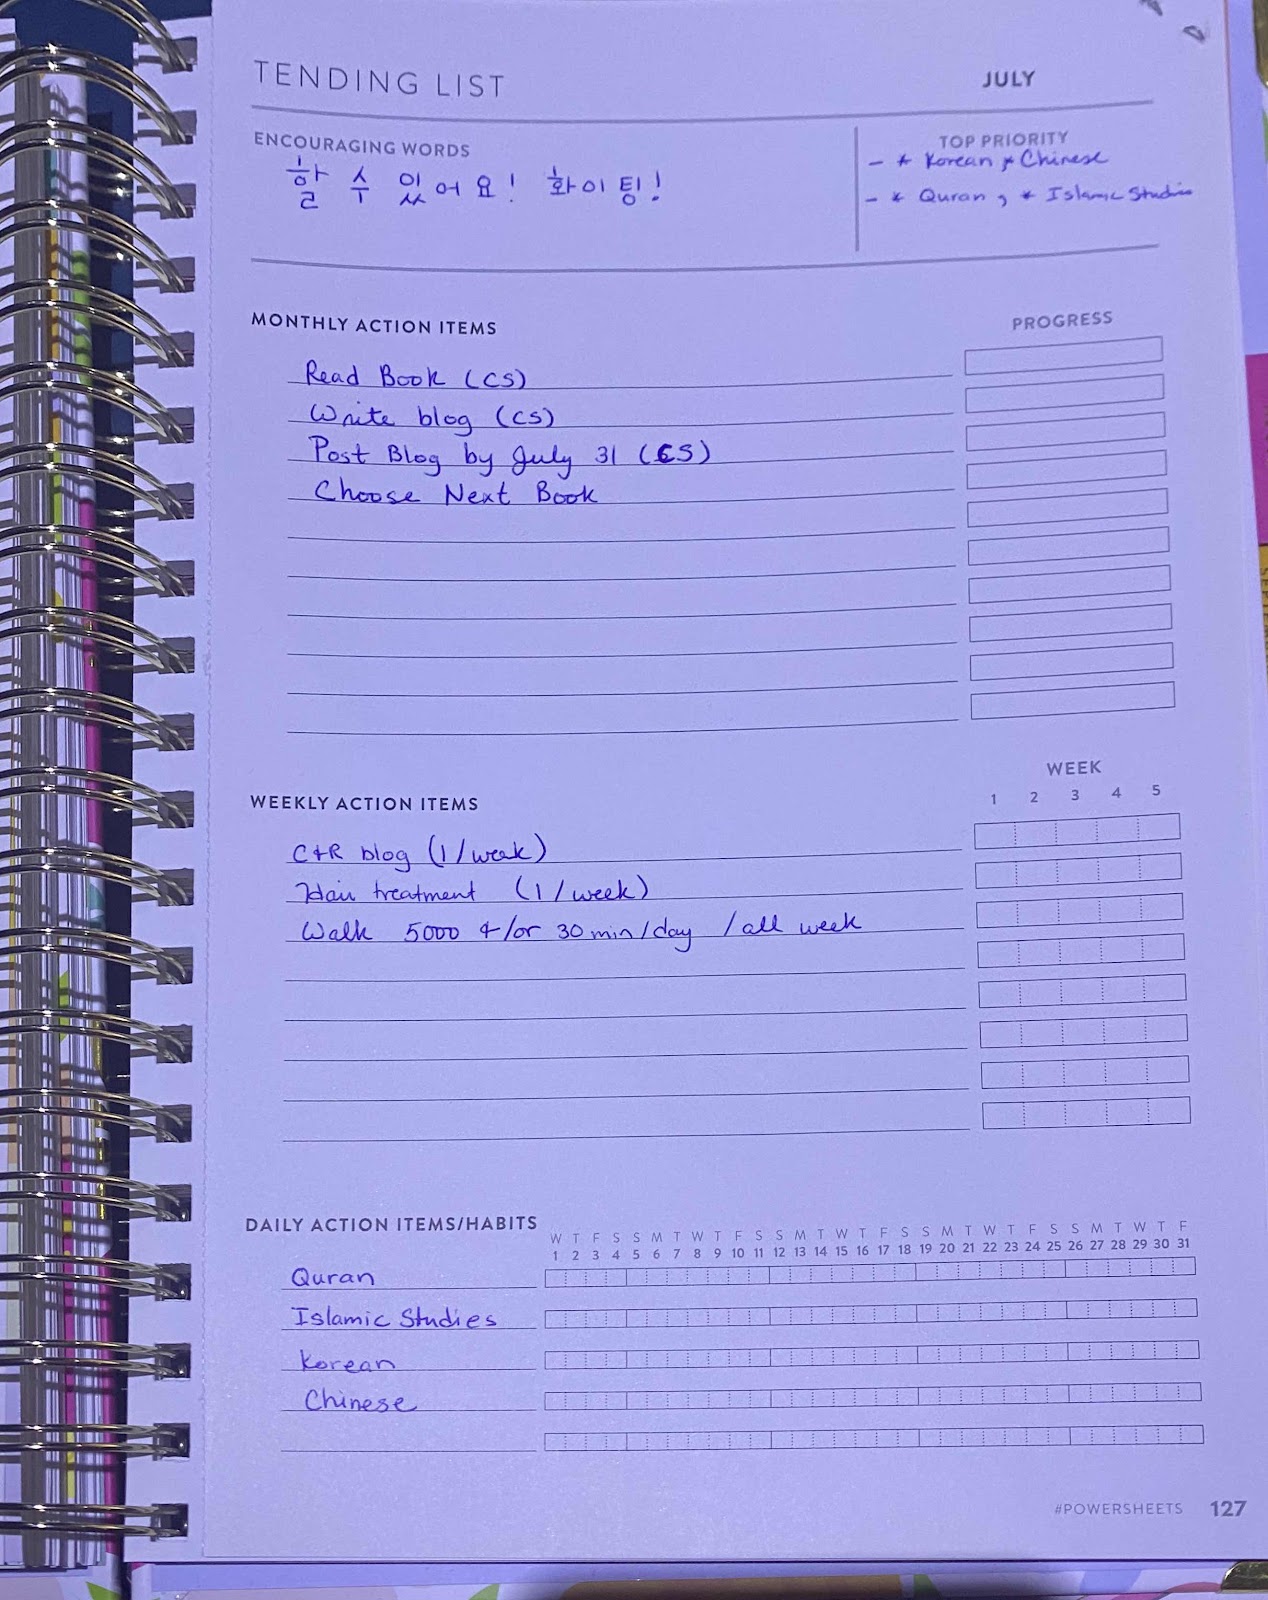 TENDING LIST
JULY
ENCOURAGING WORDS
할 수 있어요! 화이팅!
TOP PRIORITY
- * Korean * Chinese
- * Quran, * Islamic Studies
MONTHLY ACTION ITEMS
PROGRESS
Read Book (CS)
Write blog (CS)
Post Blog by July 31 (CS)
Choose Next Book
WEEKLY ACTION ITEMS
WEEK
1 2 3 4 5
C+R blog (1/week)
Hair treatment (1/week)
Walk 5000 +/or 30 min/day /all week
DAILY ACTION ITEMS/HABITS
W T F S S M T W T F S S M T W T F S S M T W T F S S M T W T F
1 2 3 4 5 6 7 8 9 10 11 12 13 14 15 16 17 18 19 20 21 22 23 24 25 26 27 28 29 30 31
Quran
Islamic Studies
Korean
Chinese
#POWERSHEETS 127